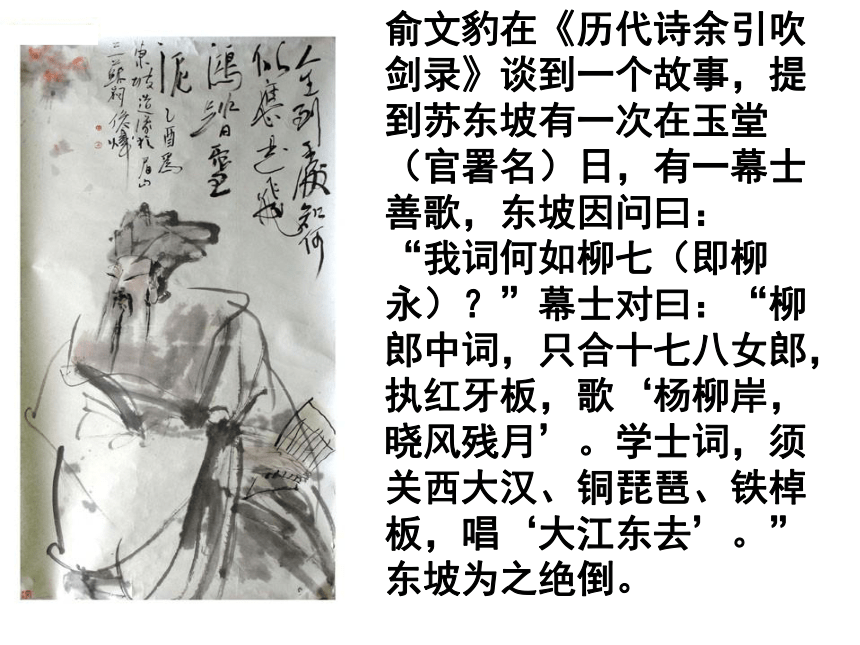 人生到處知何
似應是飛
鴻踏雪
泥 乙酉為
東坡造像於眉山
三蘇祠
俞文豹在《历代诗余引吹
剑录》谈到一个故事，提
到苏东坡有一次在玉堂
（官署名）日，有一幕士
善歌，东坡因问曰：
“我词何如柳七（即柳
永）？”幕士对曰：“柳
郎中词，只合十七八女郎，
执红牙板，歌‘杨柳岸，
晓风残月’。学士词，须
关西大汉、铜琵琶、铁棹
板，唱‘大江东去’。”
东坡为之绝倒。